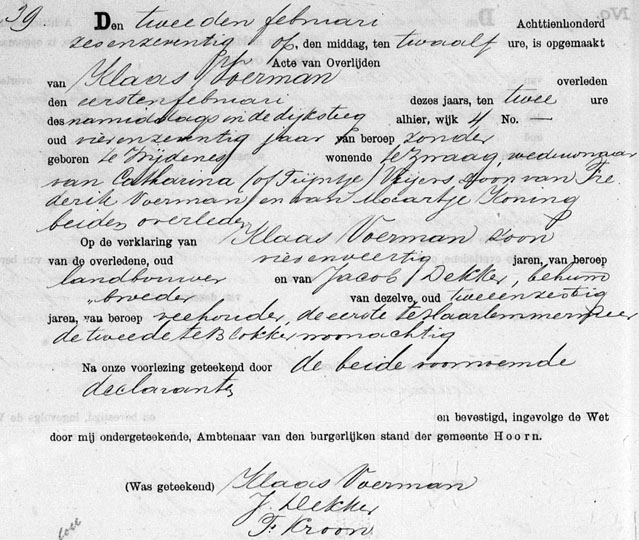 39
Den tweeden februari Achttienhonderd
zesenzeventig of, den middag, ten twaalf ure, is opgemaakt
Acte van Overlijden
van Klaas Voerman overleden
den eersten februari dezes jaars, ten twee ure
des namiddags in de dijksteeg alhier, wijk 4 No. —
oud vierenzeventig jaar van beroep zonder
geboren te Wijdenes wonende te Zwaag, weduwnaar
van Catharina (of Trijntje) Vrijers zoon van Fre
derik Voerman en van Maartje Koning
beiden overleden
Op de verklaring van Klaas Voerman zoon
van de overledene, oud vierenveertig jaren, van beroep
landbouwer en van Jacob Dekker, behuwd
„broeder van dezelve, oud tweeenzestig
jaren, van beroep veehouder, de eerste te Haarlemmermeer
de tweede te Blokker woonachtig
Na onze voorlezing geteekend door de beide voornoemde
declaranten
en bevestigd, ingevolge de Wet
door mij ondergeteekende, Ambtenaar van den burgerlijken stand der gemeente Hoorn.
(Was geteekend) Klaas Voerman
J. Dekker
F. Kroon